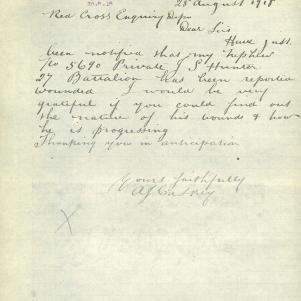 28 August 1918
Red Cross Enquiry Depo
Dear Sir
Have just
been notified that my nephew
No 5690 Private J S Hunter
27 Battalion has been reported
wounded I would be very
grateful if you could find out
the nature of his wounds & how
he is progressing
Thanking you in anticipation
Yours faithfully